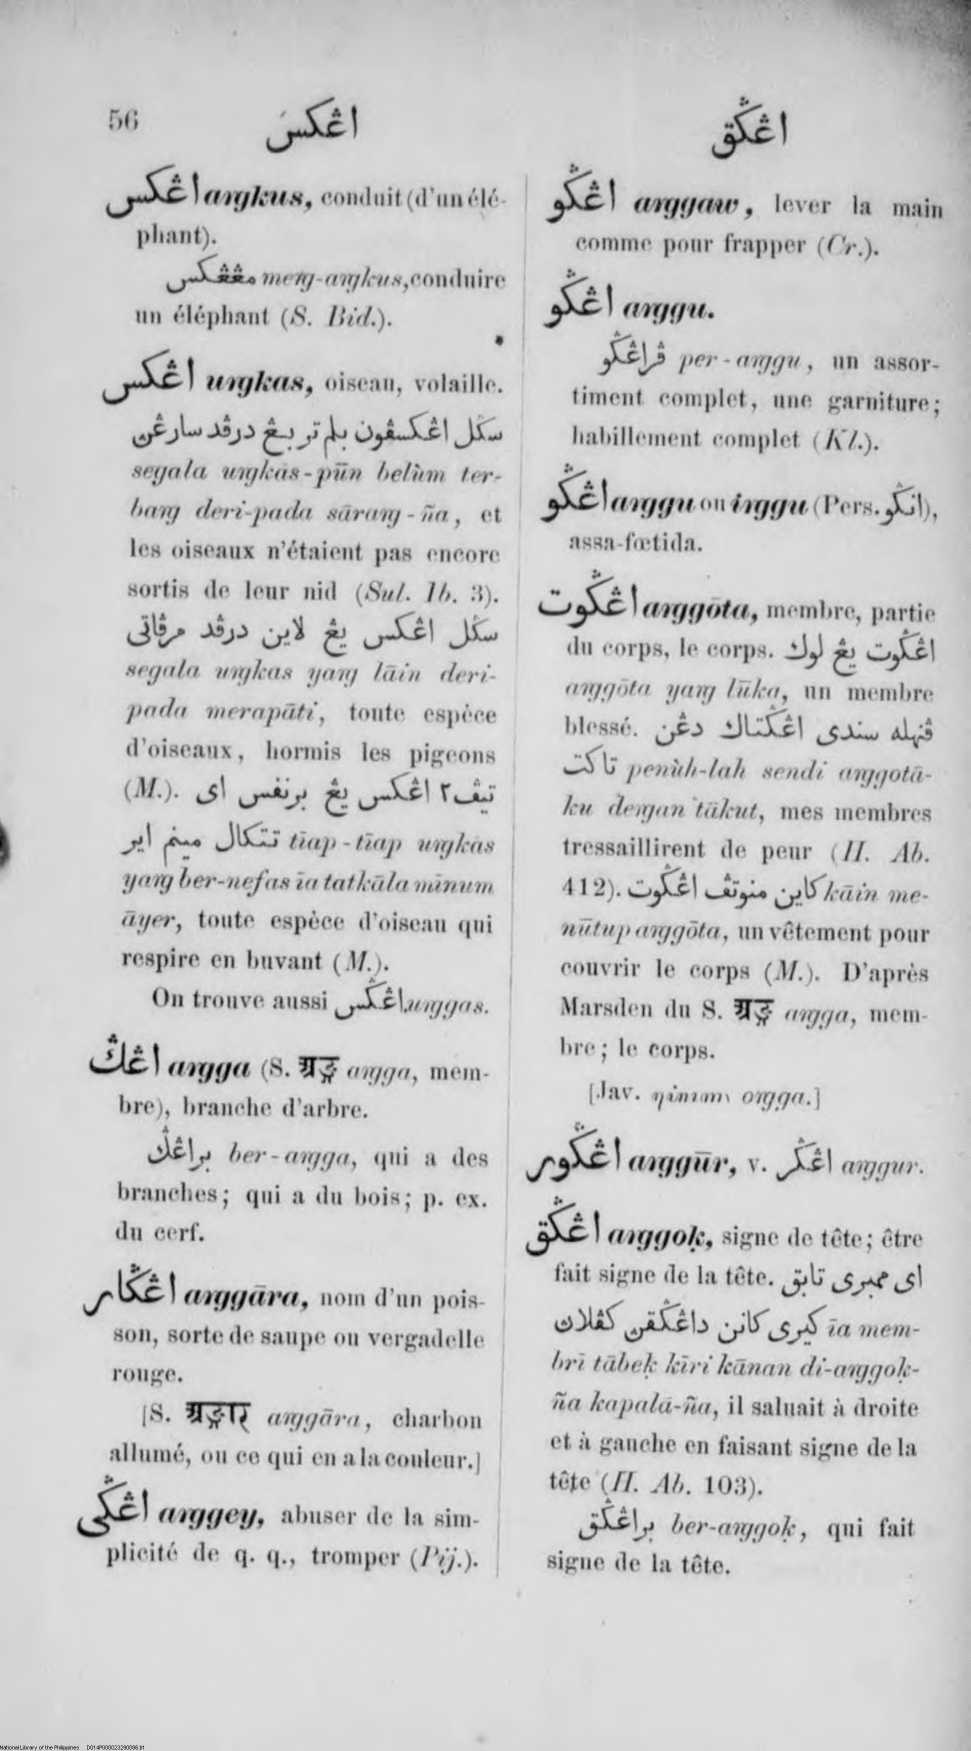 56
اڠکس
اڠݢق
اڠکس aŋkus, conduit (d'un élé-
phant).
مڠڠکس meŋ-aŋkus, conduire
un éléphant (S. Bid.).
اڠکس uŋkas, oiseau, volaille.
سݢل اڠکسڤون بلم تر بڠ درڤد سارڠن
segala uŋkas-pūn belùm ter-
baŋ deri-pada sāraŋ-ña, et
les oiseaux n'étaient pas encore
sortis de leur nid (Sul. Ib. 3).
سݢل اڠکس يڠ لاين درڤد مرڤاتى
segala uŋkas yaŋ lāin deri-
pada merapāti, toute espèce
d'oiseaux, hormis les pigeons
(M.). تيڤ٢ اڠکس يڠ برنفس اى
تتکال مينم اير tīap-tīap uŋkas
yaŋ ber-nefas īa tatkāla mīnum
āyer, toute espèce d'oiseau qui
respire en buvant (M.).
On trouve aussi اڠݢس uŋgas.
اڠݢ aŋga (S. अङ्ग aŋga, mem-
bre), branche d'arbre.
براڠݢ ber-aŋga, qui a des
branches; qui a du bois; p. ex.
du cerf.
اڠݢار aŋgāra, nom d'un pois-
son, sorte de saupe ou vergadelle
rouge.
[S. अङ्गार aŋgāra, charbon
allumé, ou ce qui en a la couleur.]
اڠݢى aŋgey, abuser de la sim-
plicité de q. q., tromper (Pij.).
اڠݢو aŋgaw, lever la main
comme pour frapper (Cr.).
اڠݢو aŋgu.
ڤراڠݢو per-aŋgu, un assor-
timent complet, une garniture;
habillement complet (Kl.).
اڠݢو aŋgu ou iŋgu (Pers. انݢو),
assa-fœtida.
اڠݢوت aŋgōta, membre, partie
du corps, le corps. اڠݢوت يڠ لوك
aŋgōta yaŋ lūka, un membre
blessé. ڤنهله سندى اڠݢتاك دڠن
تاکت penùh-lah sendi aŋgotā-
ku deŋan tākut, mes membres
tressaillirent de peur (H. Ab.
412). کاين منوتڤ اڠݢوت kāin me-
nūtup aŋgōta, un vêtement pour
couvrir le corps (M.). D'après
Marsden du S. अङ्ग aŋga, mem-
bre; le corps.
[Jav. oŋga.]
اڠݢور aŋgūr, v. اڠݢر aŋgur.
اڠݢق aŋgoḳ, signe de tête; être
fait signe de la tête. اى ممبرى تابق
کيرى کانن داڠݢقن کڤلان īa mem-
brī tābeḳ kīri kānan di-aŋgoḳ-
ña kapalā-ña, il saluait à droite
et à gauche en faisant signe de la
tête (H. Ab. 103).
براڠݢق ber-aŋgoḳ, qui fait
signe de la tête.
National Library of the Philippines